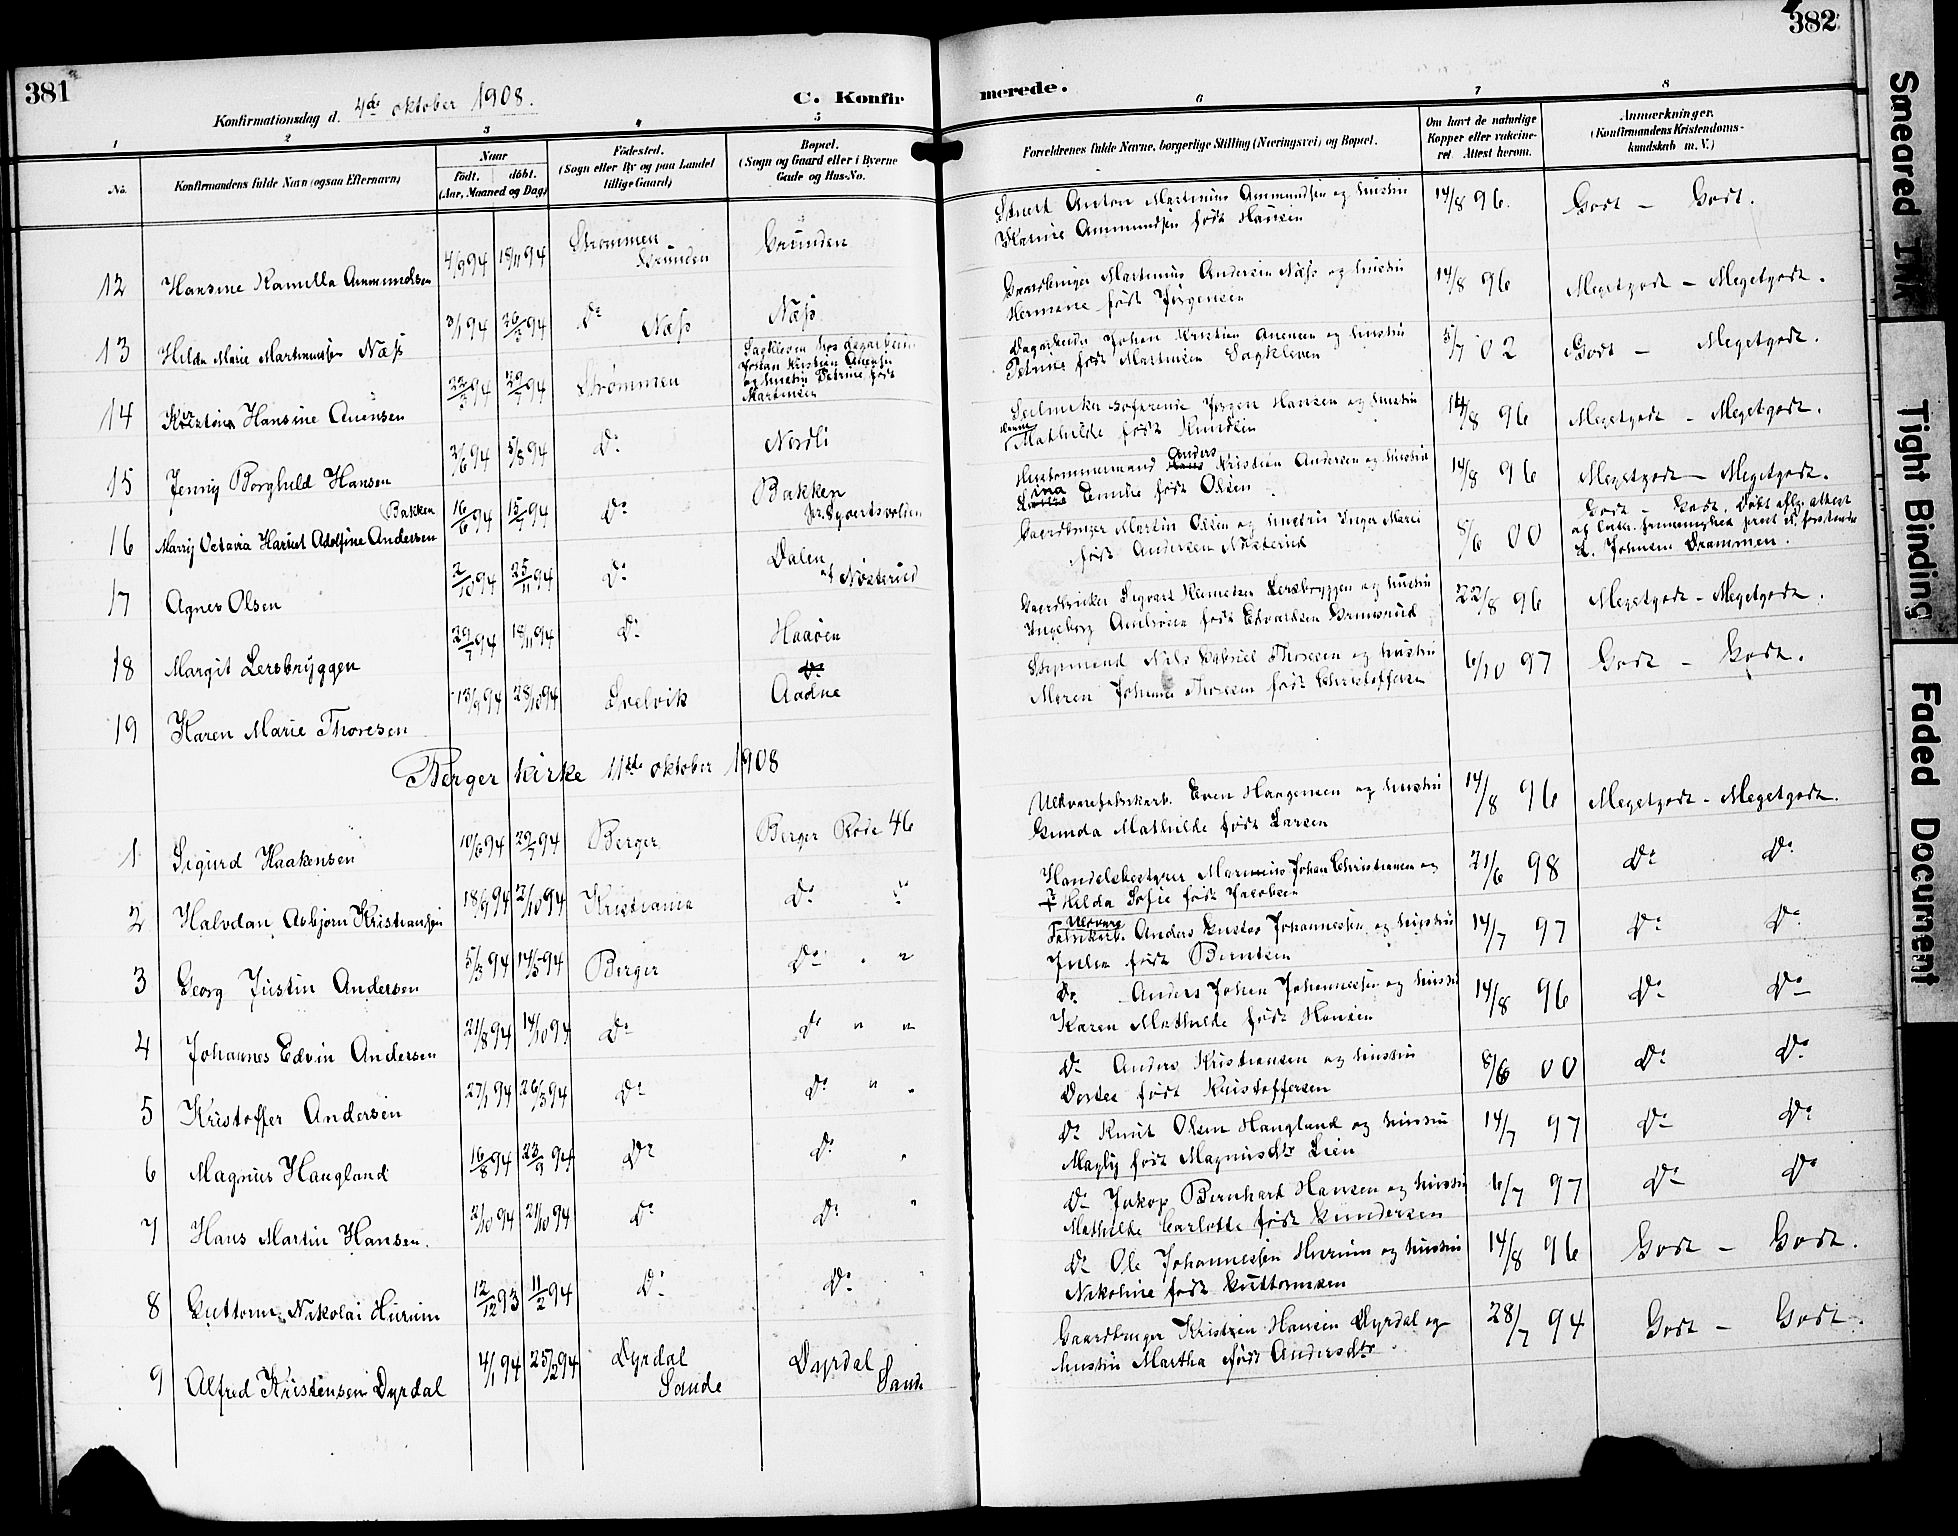 381
382
Konfirmationsdag d. 4de oktober 1908.
C. Konfirmerede.
1 2 3 4 5 6 7 8
No.
Konfirmandens fulde Navn (ogsaa Efternavn)
Naar
født. døbt.
(Aar, Maaned og Dag)
Fødested.
(Sogn eller By og paa Landet
tillige Gaard)
Bopæl.
(Sogn og Gaard eller i Byerne
Gade og Hus-No.
Forældrenes fulde Navne, borgerlige Stilling (Næringsvei) og Bopæl.
Om havt de naturlige
Kopper eller vakcine-
ret. Attest herom.
Anmærkninger.
(Konfirmandens Kristendoms-
kundskab m. V.)
12 Hansine Kamilla Ammundsen 4/9 94 18/11 94 Strømmen Grunden Grunden
Anton Martinius Ammundsen og hustru
Karine Ammundsen født Hansen
14/8 96. Godt – Godt.
13 Hilda Marie Martinusen Næss 3/1 94 26/3 94 Do Næss Næss
Gaardbruger Martinius Andersen Næss og hustru
Hermine født Jørgensen
14/8 96 Megetgodt – Megetgodt.
14 Kristine Hansine Anensen 22/5 94 29/7 94 Strømmen
Sagkleven hos dagarbeider
Johan Kristian Anensen
og hustru Petrine født
Martinsen
Dagarbeider Johan Kristian Anensen og hustru
Petrine født Martinsen Sagkleven
5/7 02 Godt – Megetgodt.
15 Jenny Borghild Hansen 3/6 94 5/8 94 Do Nordli
Jørgen Hansen og hustru
Mathilde født Knudsen
14/8 96 Megetgodt – Megetgodt.
16 Marry Octavia Hariet Adolfine Andersen Bakken 16/6 94 15/7 94 Do Bakken
Anders Kristian Andersen og hustru
Lina Emilie født Olsen
14/8 96 Megetgodt – Megetgodt.
17 Agnes Olsen 2/10 94 25/11 94 Do Dalen af Nøsterud
Gaardbruger Martin Olsen og hustru Inger Marie
født Andersen Nøsterud
8/6 00 Godt – Godt. Døbt aflg. attest
Johnsen Drammen.
18 Margit Lersbryggen 29/7 94 18/11 94 Do Haaøen
Gaardbruker Sigvart Lersbryggen og hustru
Ingeborg født Edvardsen
22/8 96 Megetgodt – Megetgodt.
19 Karen Marie Thoresen 13/9 94 28/10 94 Svelvik Do Aadne
Styrmand Nils Gabriel Thoresen og hustru
Maren Johanne Thoresen født Christoffersen
6/10 97 Godt – Godt.
Berger kirke 11te oktober 1908
1 Sigurd Haakensen 10/6 94 29/7 94 Berger Berger Rode 46
Uldvarefabrikarb. Even Haagensen og hustru
Gunda Mathilde født Larsen
14/8 96 Megetgodt – Megetgodt.
2 Halvdan Asbjørn Kristiansen 18/9 94 2/10 94 Kristiania Do "
Handelsbestyrer Marinius Johan Christiansen og
Hilda Sofie født Jacobsen
21/6 98 Do Do
3 Georg Justin Andersen 5/3 94 14/5 94 Berger Do " "
Uldvare Fabrikarb. Anders Gustav Johannessen og hustru
Julia født Berntsen
14/7 97 Do Do
4 Johannes Edvin Andersen 21/8 94 14/10 94 Do Do " "
Do Anders Johan Johannessen og hustru
Karen Mathilde født Hansen
14/8 96 Do Do
5 Kristoffer Andersen 27/1 94 26/3 94 Do Do " "
Do Anders Kristiansen og hustru
Dortea født Kristoffersen
8/6 00 Do Do
6 Magnus Haugland 16/8 94 23/9 94 Do Do "
Do Knut Olsen Haugland og hustru
født Magnusdtr Lien
14/7 97 Do Do
7 Hans Martin Hansen. 2/10 94 21/10 94 Do Do "
Do Jakop Bernhard Hansen og hustru
Mathilde Carlotte født Gundersen
6/7 97 Do Do
8 Guttorm Nikolai Hurum 12/12 93 11/2 94 Do Do "
Do Ole Johannessen Hurum og hustru
Nikoline født Guttormsen
14/8 96 Godt – Godt.
9 Alfred Kristensen Dyrdal 4/1 94 25/2 94 Dyrdal Sande Dyrdal Sande
Gaardbruger Kristian Hansen Dyrdal og
hustru Martha født Andersdtr
28/7 94 Godt – Godt.
Smeared Ink
Tight Binding
Faded Document